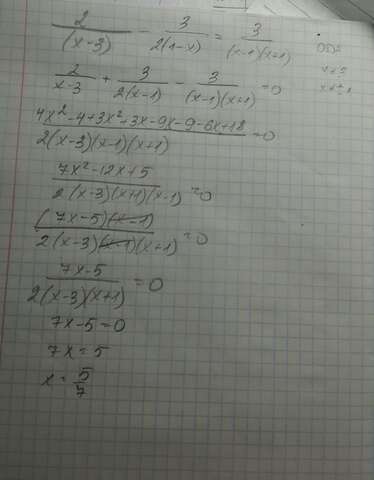 2/(x-3) - 3/2(1-x) = 3/(x-1)(x+1)
ОДЗ
2/x-3 + 3/2(x-1) - 3/(x-1)(x+1) =0
4x²-4+3x²+3x-9x-9-6x+18/2(x-3)(x-1)(x+1) =0
7x²-12x+5/2(x-3)(x+1)(x-1) =0
(7x-5)(x-1)/2(x-3)(x-1)(x+1) =0
7x-5/2(x-3)(x+1) =0
7x-5=0
7x=5
x=5/7